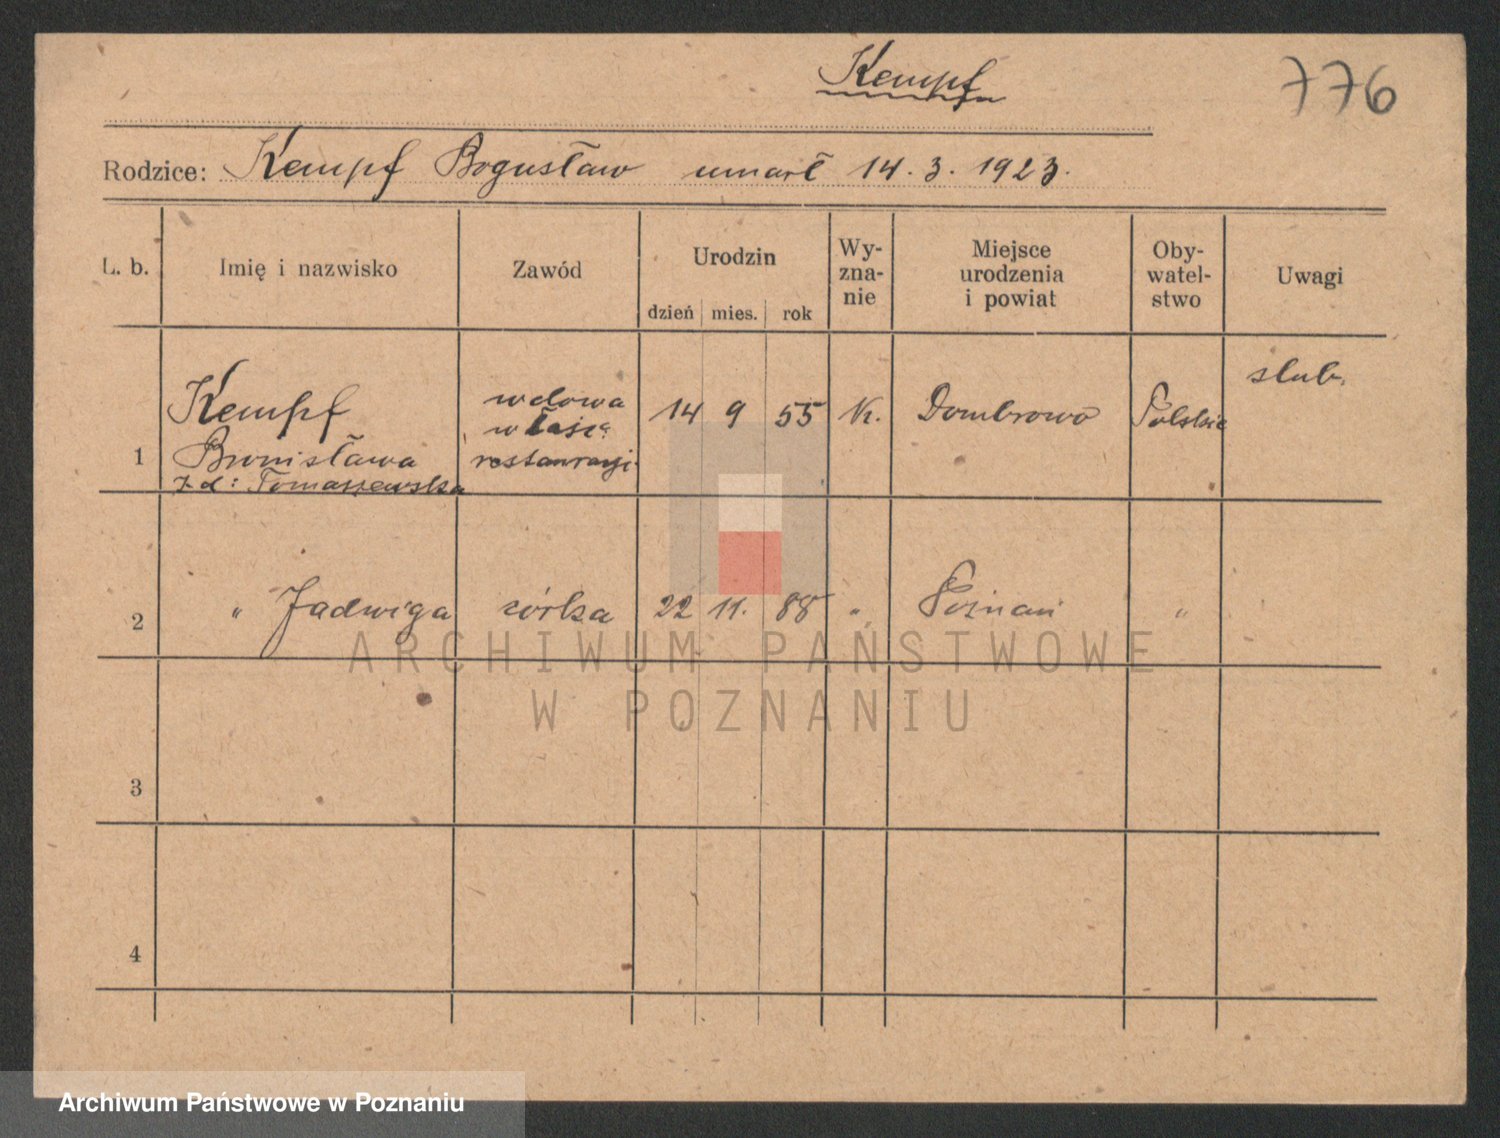 Kempf
776
Rodzice: Kempf Bogusław umarł 14. 3. 1923.
L. b.
Imię i nazwisko
Zawód
Urodzin
dzień mies. rok
Wy-
zna-
nie
Miejsce
urodzenia
i powiat
Oby-
watel-
stwo
Uwagi
1
Kempf
Bronisława
z d: Tomaszewska
wdowa
właśc.
restauracji
14 9 55
K.
Dombrowo
Polskie
slub.
2
" Jadwiga
córka
22 11. 88
"
Poznań
"
3
4
ARCHIWUM PAŃSTWOWE
W POZNANIU
Archiwum Państwowe w Poznaniu